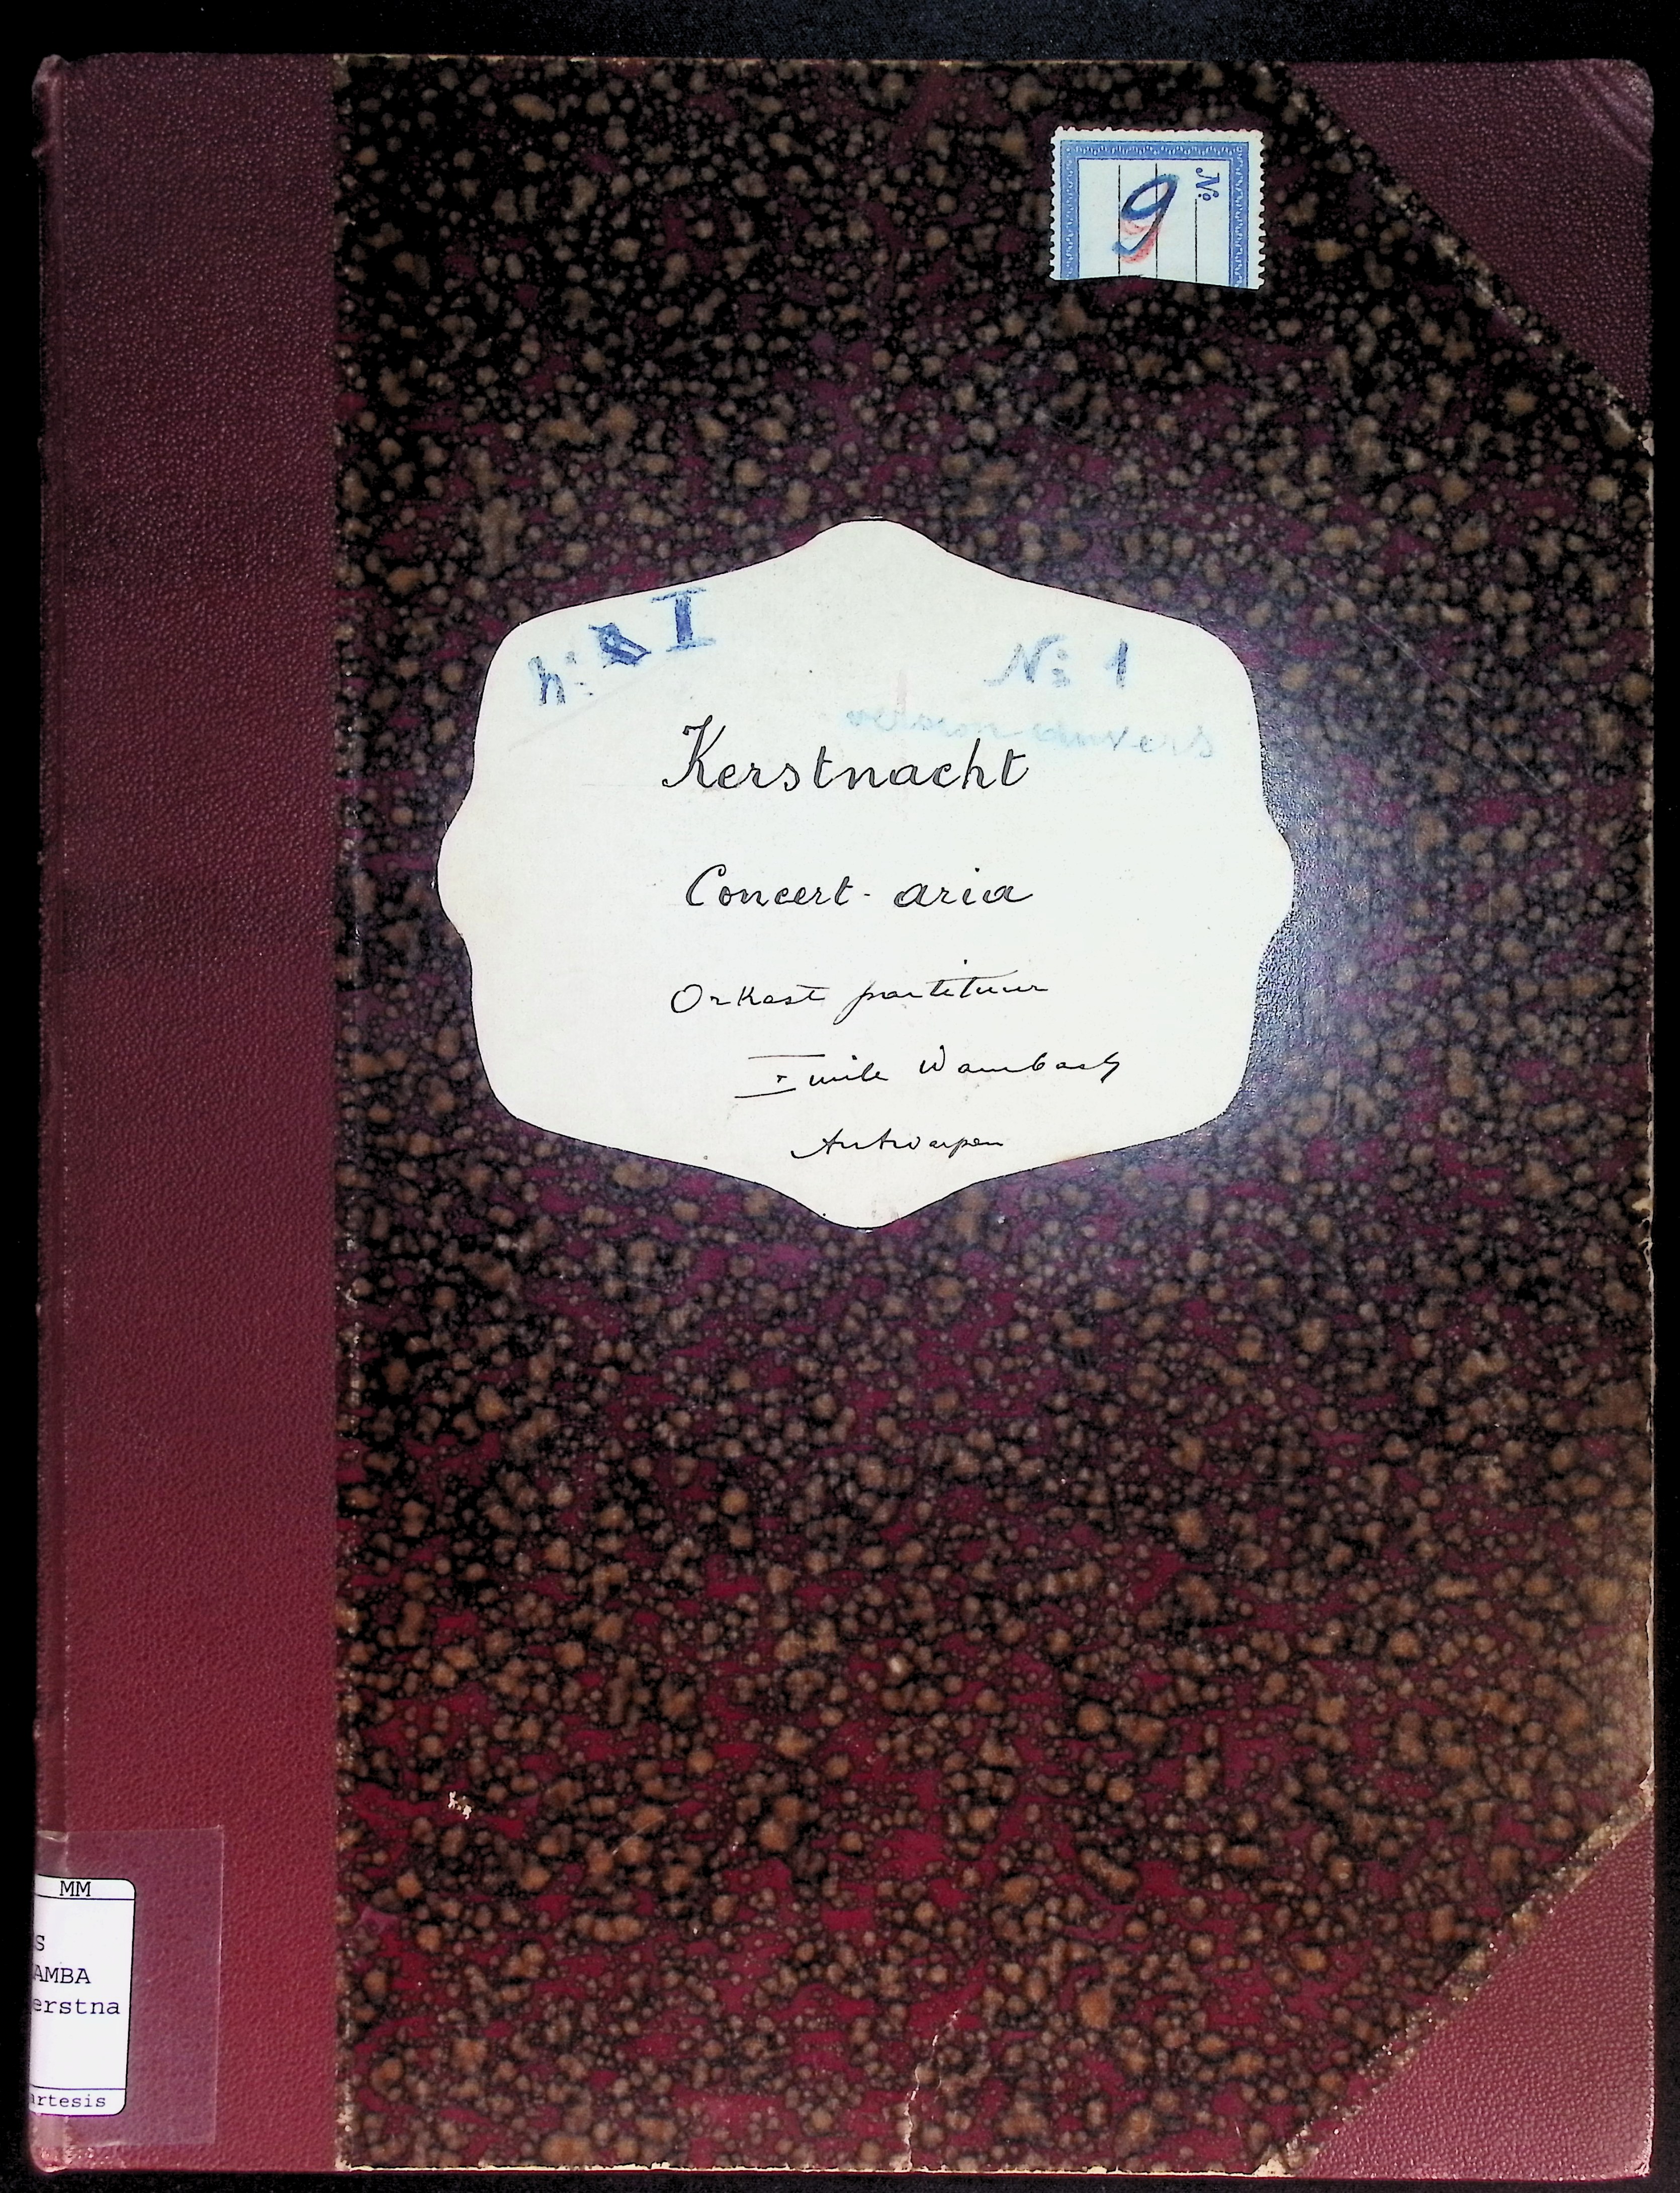 No
9
No: I
No: 1
anvers
Kerstnacht
Concert-aria
Orkest partituur
Emile Wambach
Antwerpen
MM
S
AMBA
erstna
artesis